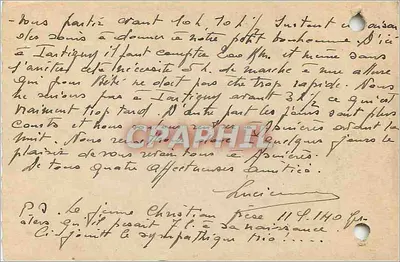 -nous partir avant 10h, 10h½ surtout en raison
des soins à donner à notre petit bonhomme. D'ici
à Lartigue, il faut compter 200 Km. et même sans
s'arrêter cela nécessite 5 h. de marche à une allure
qui pour Bébé ne doit pas être trop rapide. Nous
ne serions pas à Lartigue avant 3h½ ce qui est
vraiment trop tard. D'autre part les jours sont plus
courts et nous Asnières avant la
nuit. Nous quelques jours le
plaisir de vous revoir tous à Asnières.
De tous quatre affectueuses amitiés.
Lucienne
P.S. Le jeune Christian pèse 11 l. 140
alors qu'il pesait 7 l. à sa naissance.
Ci joint le sympathique trio.....
CPAPHIL